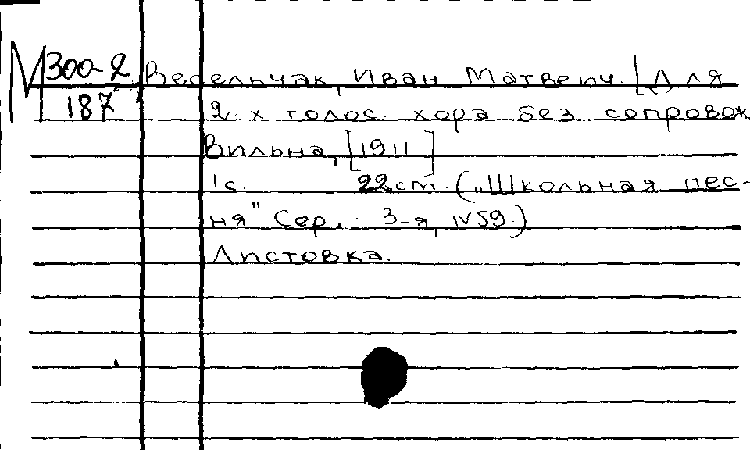 М 300-2
187
Весельчак, Иван Матвеич. [Для
2-х голос. хора без сопровож
Вильна, [1911]
1с. 22см. („Школьная пес-
ня" Сер. 3-я, №59.)
Листовка.